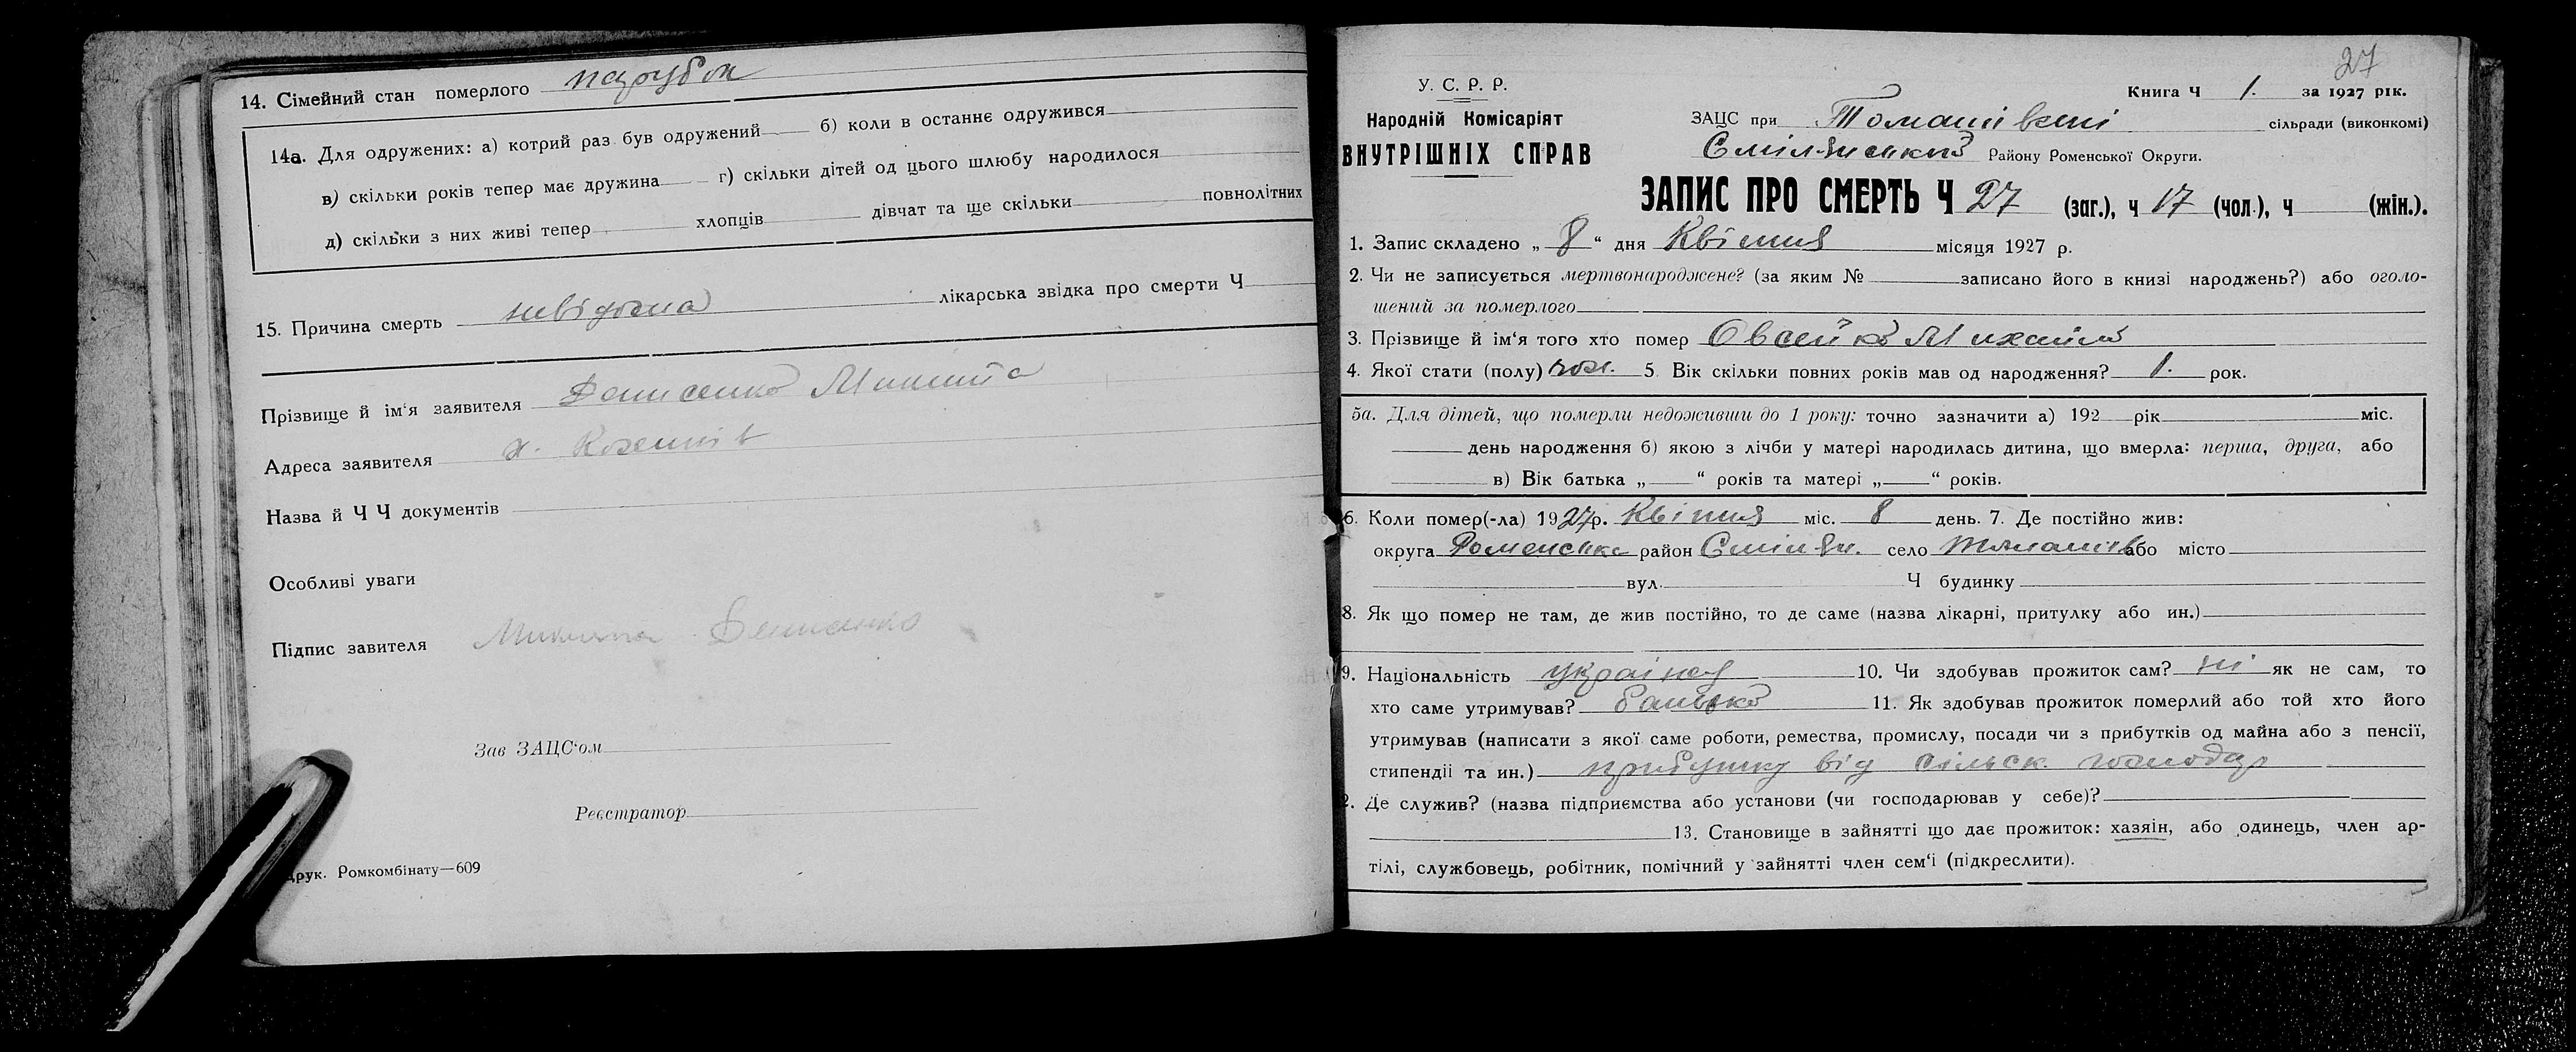 14. Сімейний стан померлого парубок
14а. Для одружених: а) котрий раз був одружений б) коли в останнє одружився
в) скільки років тепер має дружина г) скільки дітей од цього шлюбу народилося
д) скільки з них живі тепер хлопців дівчат та ще скільки повнолітних
15. Причина смерть невідома лікарська звідка про смерти Ч
Прізвище й ім‘я заявителя Денисенко Микита
Адреса заявителя х.
Назва й Ч Ч документів
Особливі уваги
Підпис завителя Микита Денисенко
Зав ЗАЦС‘ом
Реєстратор
Друк. Ромкомбінату—609
27
У. С. Р. Р.
Народній Комісаріят
ВНУТРІШНІХ СПРАВ
Книга Ч 1. за 1927 рік.
ЗАЦС при Томашівскі сільради (виконкомі)
Смілянський Району Роменської Округи.
ЗАПИС ПРО СМЕРТЬ Ч 27 (заг.), ч 17 (чол.), ч (жін.).
1. Запис складено „ 8 “ дня Квітня місяця 1927 р.
2. Чи не записується мертвонароджене? (за яким № записано його в книзі народжень?) або оголо-
шений за померлого
3. Прізвище й ім‘я того хто помер Овсейко Михайло
4. Якої стати (полу) чол. 5. Вік скільки повних років мав од народження? 1. рок.
5а. Для дітей, що померли недоживши до 1 року: точно зазначити а) 192 рік міс.
день народження б) якою з лічби у матері народилась дитина, що вмерла: перша, друга, або
в) Вік батька „ “ років та матері „ “ років.
6. Коли помер(-ла) 1927р. Квітня міс. 8 день. 7. Де постійно жив:
округа Роменська район Смілян. село Томашів або місто
вул. Ч будинку
8. Як що помер не там, де жив постійно, то де саме (назва лікарні, притулку або ин.)
9. Національність українец 10. Чи здобував прожиток сам? ні як не сам, то
хто саме утримував? батько 11. Як здобував прожиток померлий або той хто його
утримував (написати з якої саме роботи, ремества, промислу, посади чи з прибутків од майна або з пенсії,
стипендії та ин.) прибутку від сільск. господар
2. Де служив? (назва підприємства або установи (чи господарював у себе)?
13. Становище в зайнятті що дає прожиток: хазяін, або одинець, член ар-
тілі, службовець, робітник, помічний у зайнятті член сем‘і (підкреслити).